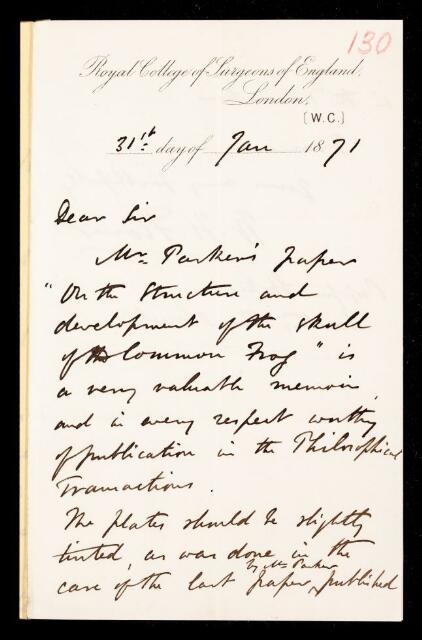 130
Royal College of Surgeons of England,
London,
(W.C.)
31st day of Jan 1871
Dear Sir
Mr Parker's paper
"On the Structure and
development of the skull
of the Common Frog" is
a very valuable memoir
and in every respect worthy
of publication in the Philosophical
Transactions.
The plates should be slightly
tinted, as was done in the
by Mr Parker
case of the last paper, published